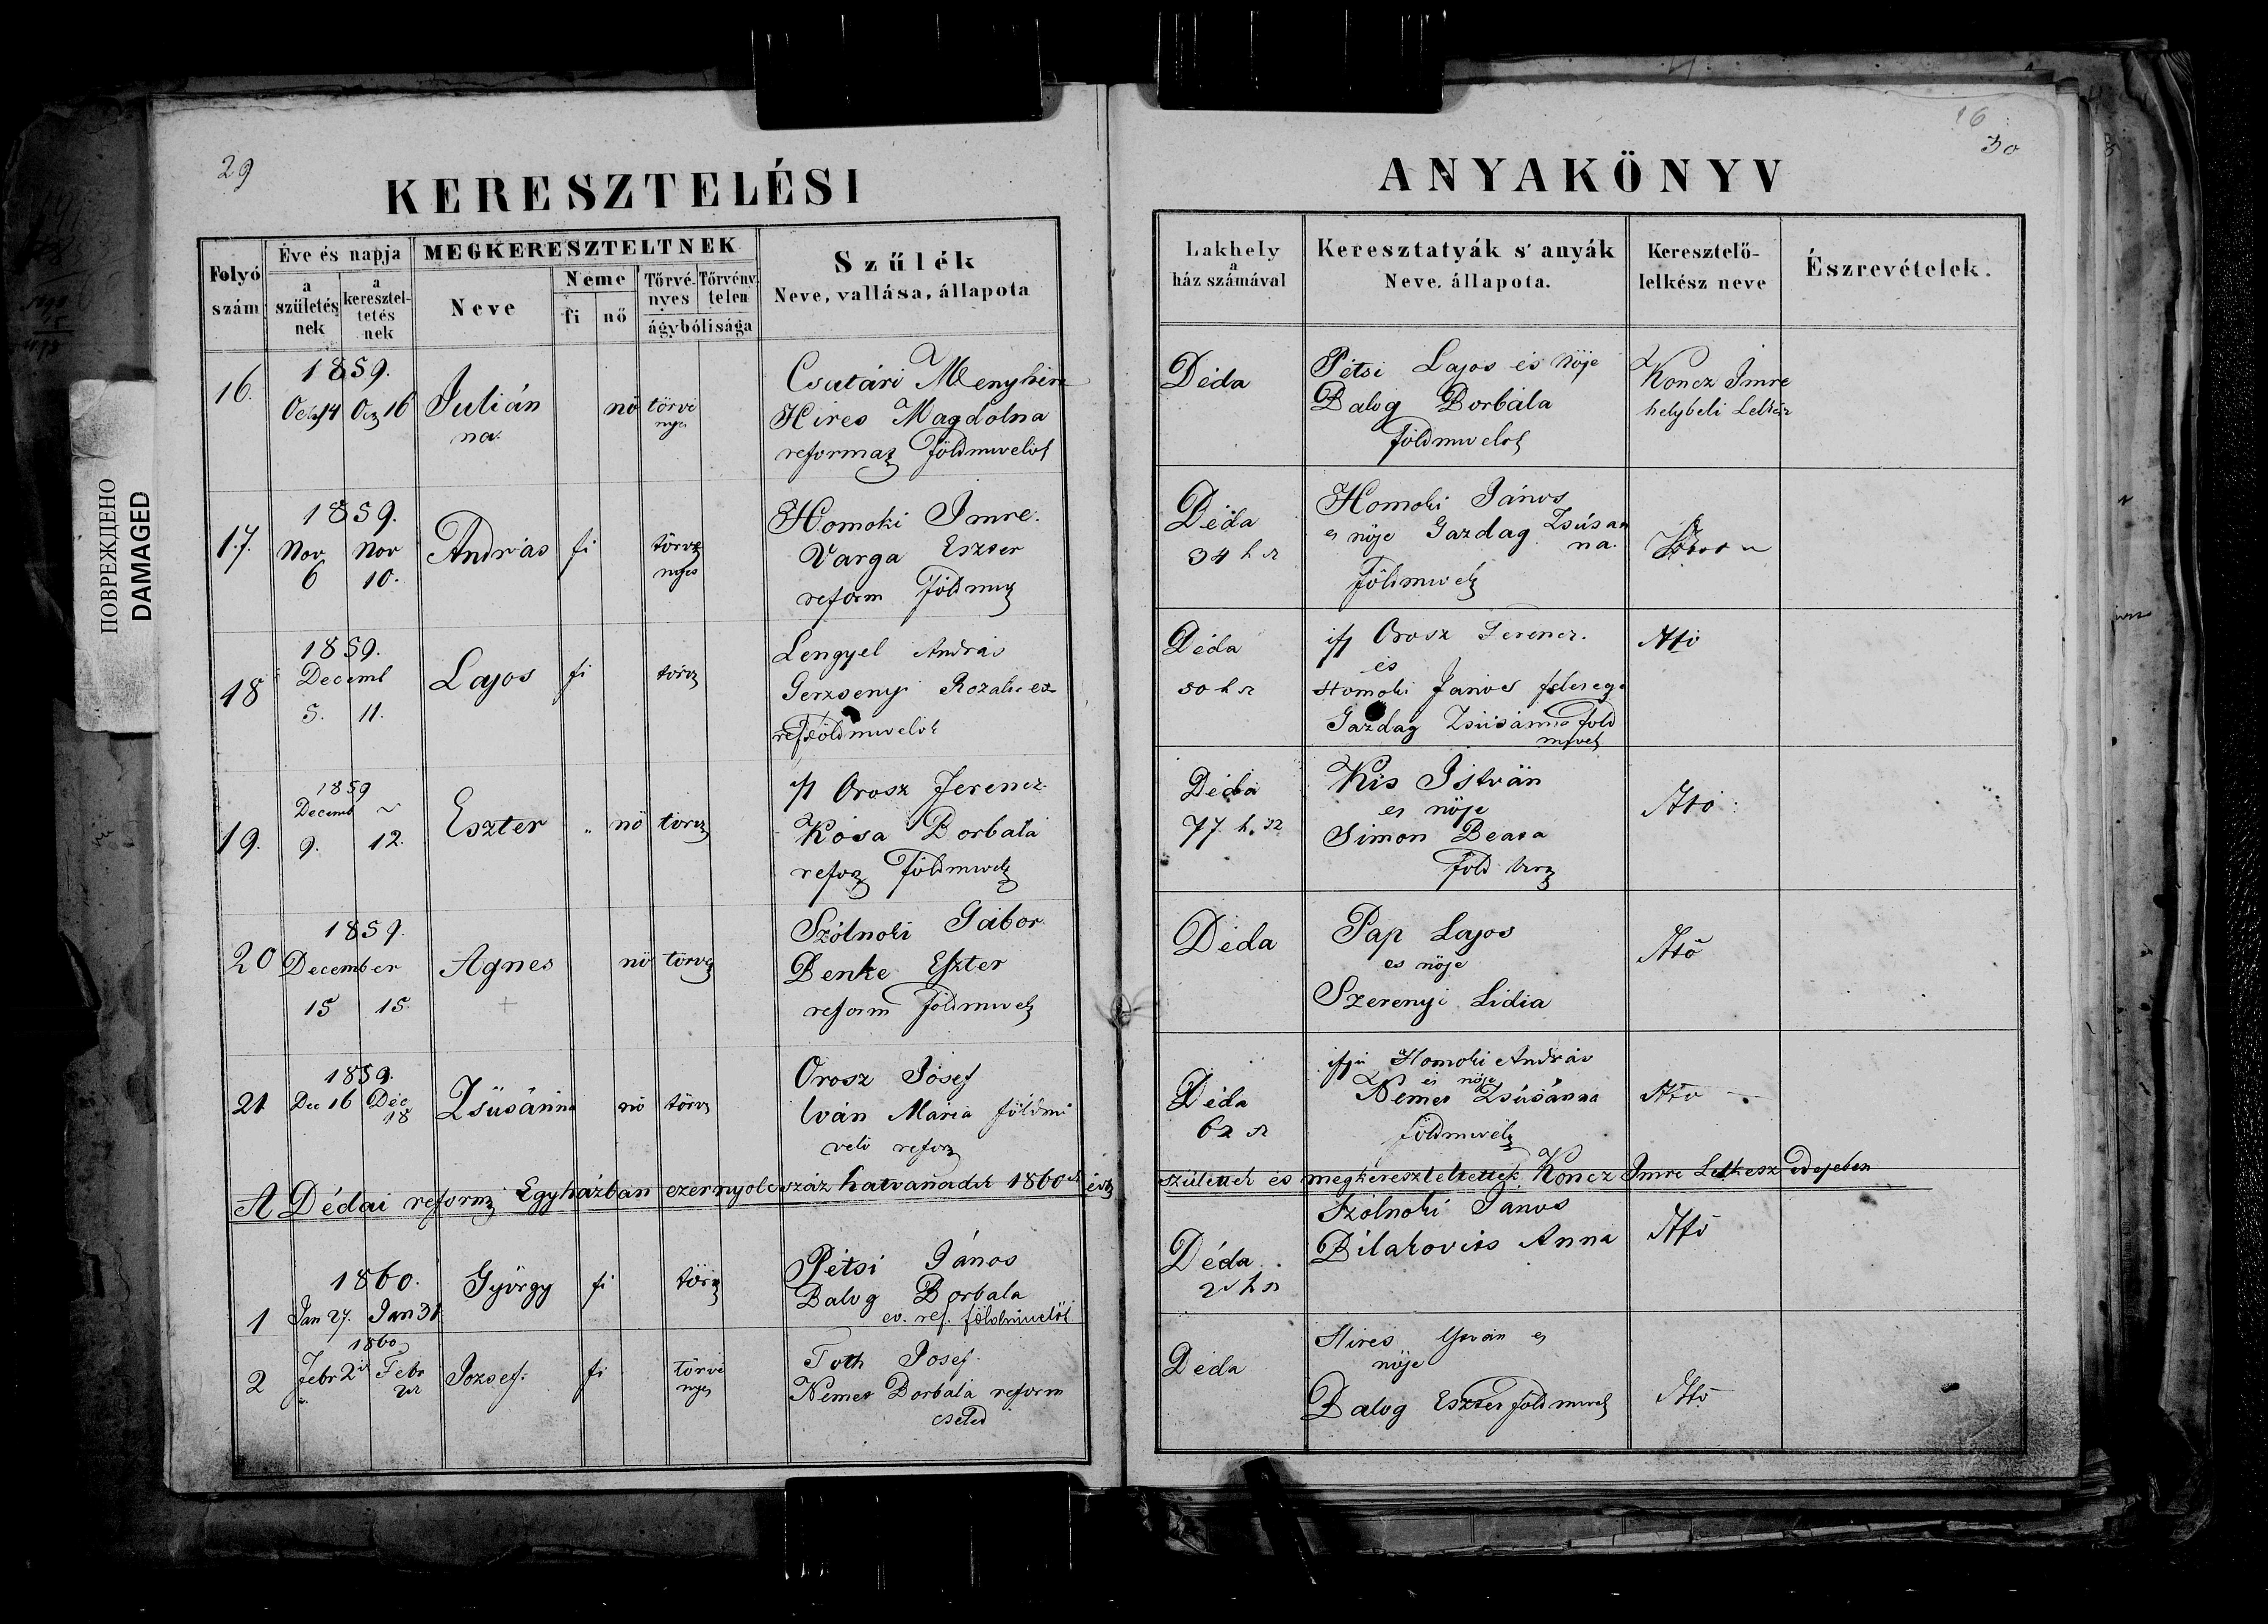 29
KERESZTELÉSI
Folyó szám
Éve és napja
a születés nek
a keresztel- tetés nek
MEGKERESZTELTNEK
Neve
Neme
fi
nő
Törvé- nyes
Törvény telen
ágybólisága
Szűlék
Neve, vallása, állapota
16.
1859.
Oct 14 Oct 16
Julián
na.
nő
törvé
nyes
Csatári Menyhért
Hires Magdolna
reformaz földmivelők
17.
1859.
Nov Nov
6 10.
András
fi
törvé
nyes
Homoki Imre.
Varga Eszter
reform földmű
18
1859.
Decemb
5. 11.
Lajos
fi
törv
Lengyel András
Gerzsenyi
ref földmivelők
19.
1859
Decemb ~
9. 12.
Eszter
"
nő
törv
if Orosz Ferencz
Kósa Borbála
refor földmivel
20
1859.
December
15 15.
Agnes
+
nő
törv
Szólnoki Gábor
Benke Eszter
reform földmivel
21
1859.
Dec 16 Dec
18
Zsúsánna
nő
törv
Orosz Jósef
Iván Mária földmi
velő refor
A Dédai reform Egyházban ezernyolcszáz hatvanadik 1860
1
1860.
Jan 27. Jan 31
György
fi
törv
Pétsi János
Balog Borbala
ev. ref. földmivelők
2
1860
Febr 2 Febr
József.
fi
törvé
nyes
Toth Josef.
Nemes Borbala reform
cseléd
16
30
ANYAKÖNYV
Lakhely
a
ház számával
Keresztatyák s' anyák
Neve, állapota.
Keresztelő-
lelkész neve
Észrevételek.
Déda
Pétsi Lajos és nője
Balog Borbála
földmivelők
Koncz Imre
helybeli
Déda
34 h
Homoki János
es nője Gazdag Zsúsan
na.
földmivel
Déda
50 h
if Orosz Ferencz.
és
Homoki János felesege
Gazdag Zsúsánna föld
mivel
Déda
77. h.
Kis István
es nője
Simon
föld
Déda
Pap Lajos
es nője
Szerenyi Lidia
Déda
62
ifju Homoki András
es nője
Nemes Zsúsánna
földmivel
születtek és megkereszteltettek Koncz Imre Lelkesz idejeben
Déda
Szólnoki János
Anna
Déda
Hires István es
nője
Balog Eszter földmivel
ПОВРЕЖДЕНО
DAMAGED